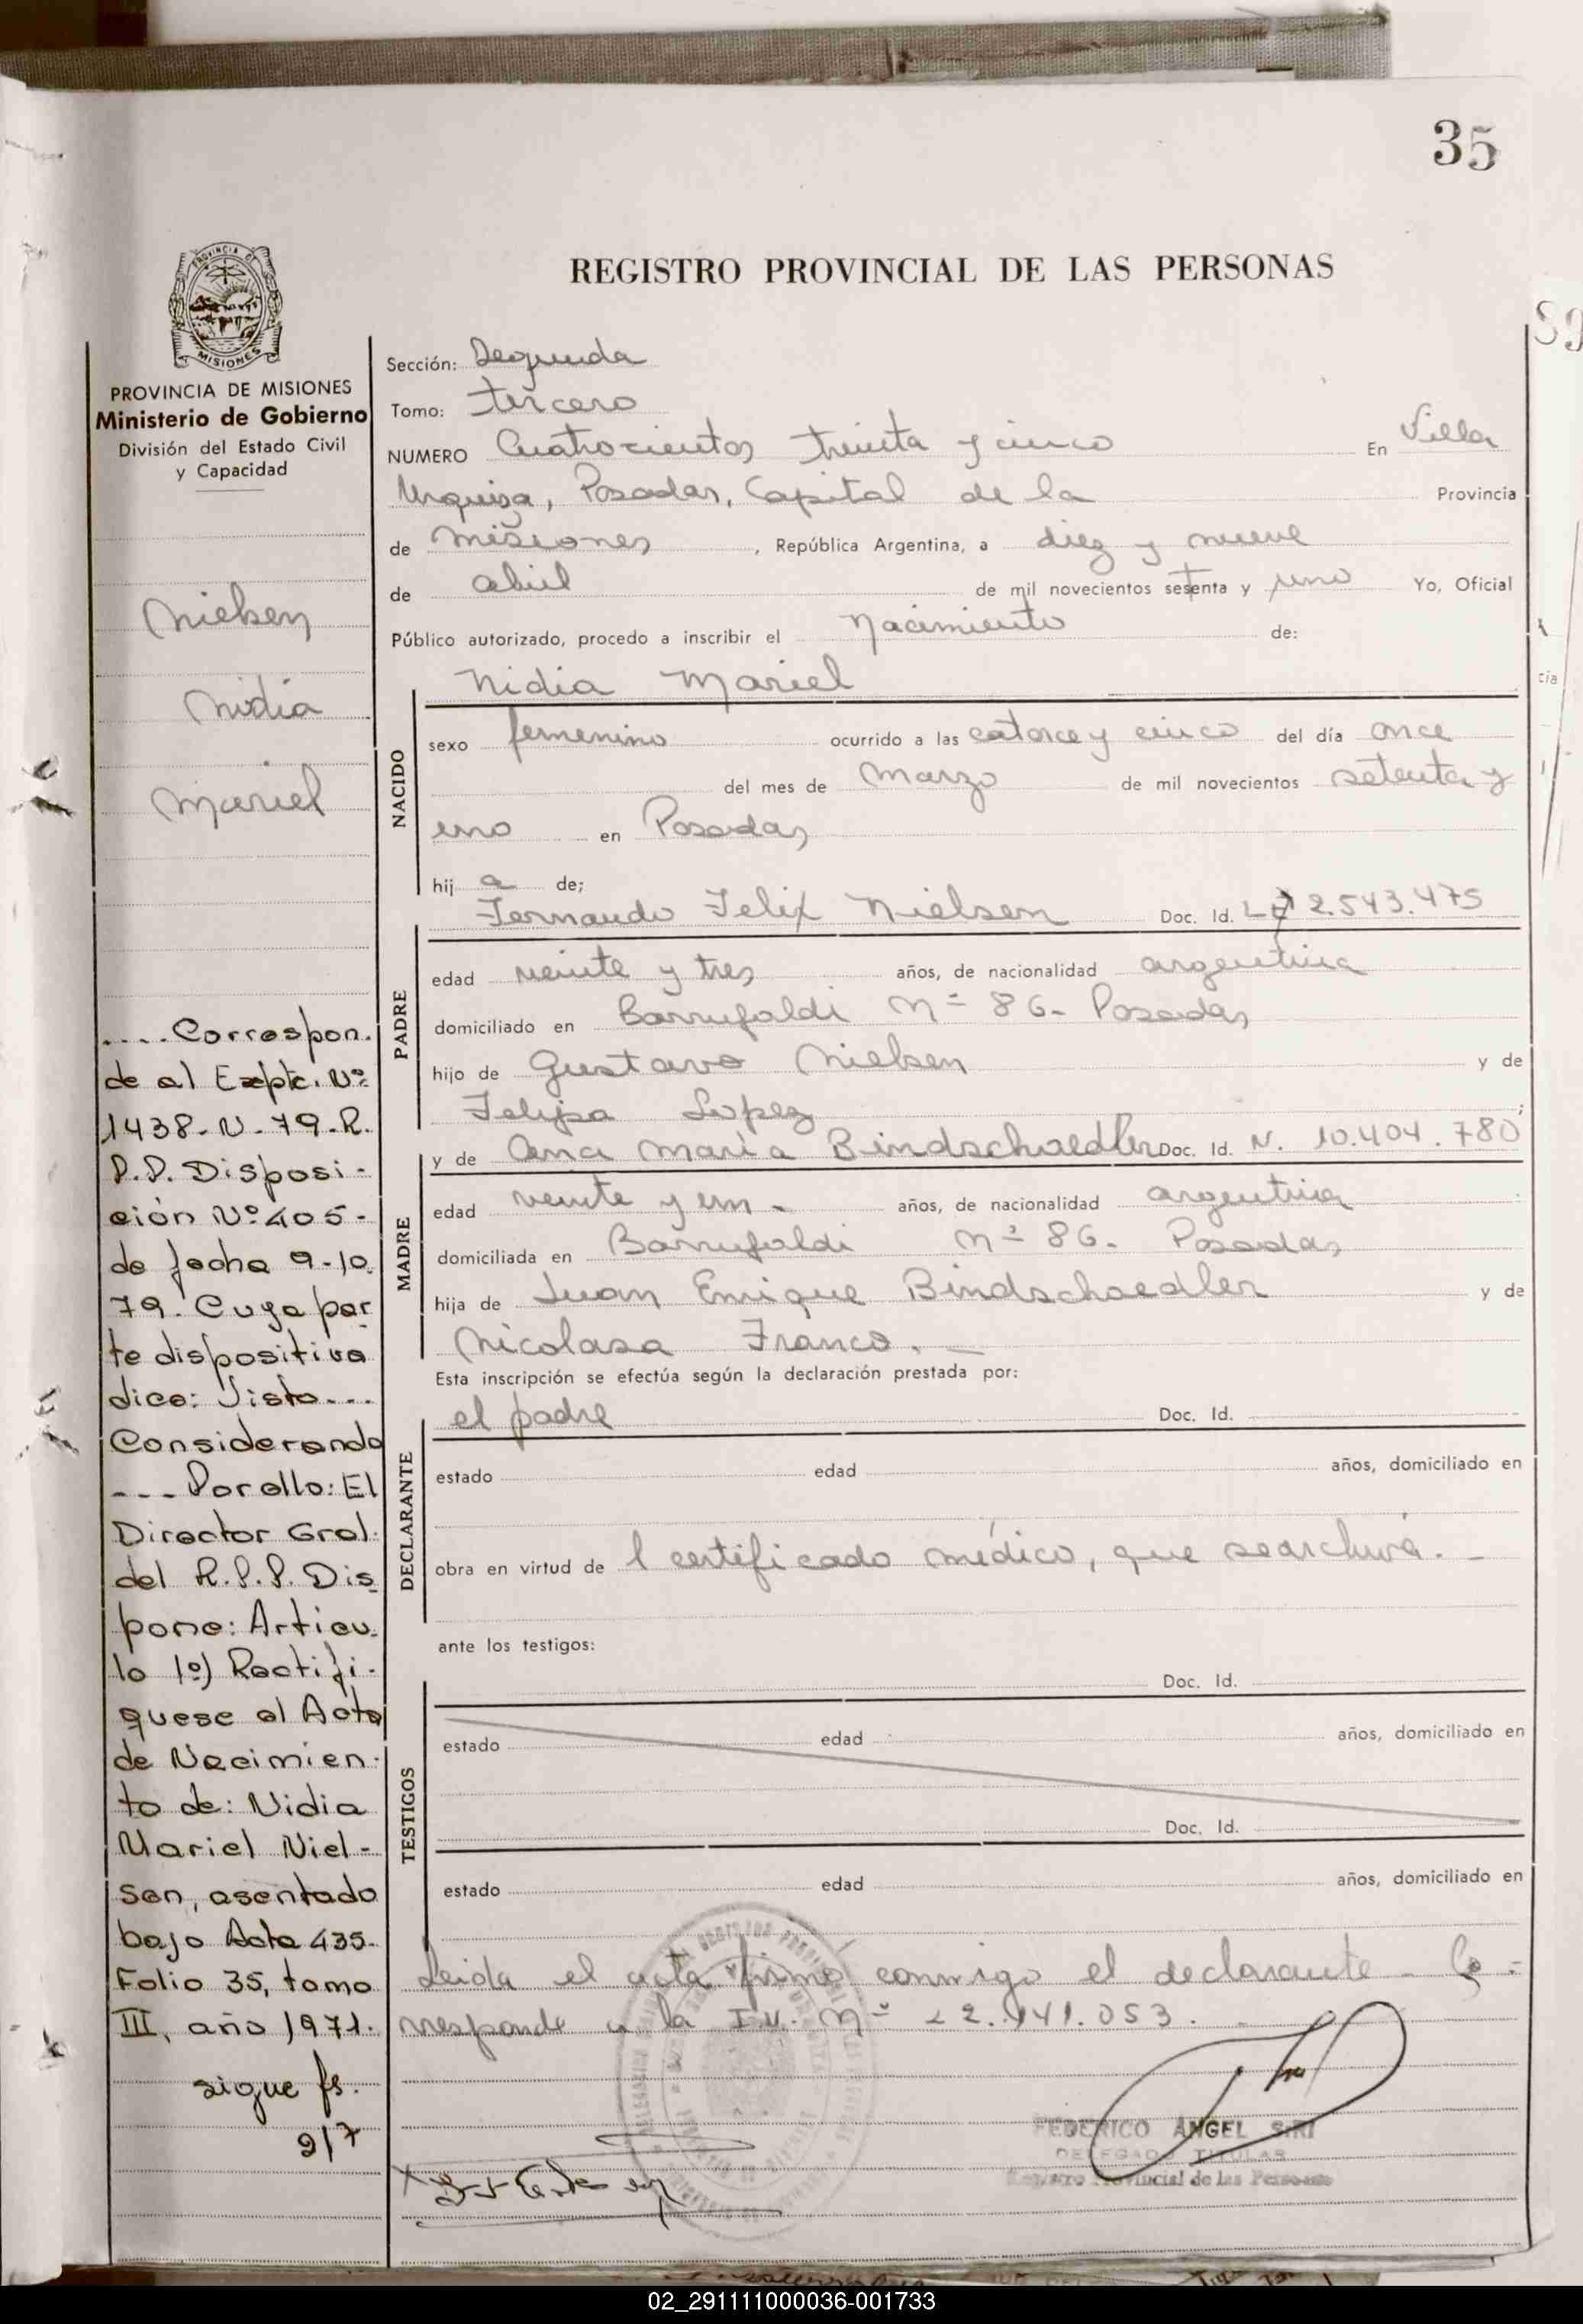 35
REGISTRO PROVINCIAL DE LAS PERSONAS
PROVINCIA DE
MISIONES
PROVINCIA DE MISIONES
Ministerio de Gobierno
División del Estado Civil
y Capacidad
Nielsen
Nidia
Mariel
....Correspon.
de al Expte. Nº
1438-N-79-R.
P.P. Disposi-
ción Nº 405-
de fecha 9-10
79. Cuya par
te dispositiva
dice: Visto...
Considerando
--- Por ello: El
Director Gral.
del R.P.P. Dis
pone: Articu.
lo 1º) Rectifi-
quese el Acta
de Nacimien-
to de: Nidia
Mariel Niel-
sen, asentado
bajo Acta 435.
Folio 35, tomo
III, año 1971.
sigue fs.
2/7
Sección: Segunda
Tomo: tercero
NUMERO Cuatrocientos treinta y cinco En Villa
Urquiza, Posadas, Capital de la Provincia
de Misiones, República Argentina, a diez y nueve
de abril de mil novecientos setenta y uno Yo, Oficial
Público autorizado, procedo a inscribir el Nacimiento de:
Nidia Mariel
NACIDO
sexo femenino ocurrido a las catorce y cinco del día once
del mes de Marzo de mil novecientos setenta y
uno en Posadas
hij a de;
Fernando Felix Nielsen Doc. Id. 2.543.475
PADRE
edad veinte y tres años, de nacionalidad argentina
domiciliado en Barrufaldi Nº 86- Posadas
hijo de Gustavo Nielsen y de
Felipa Lopez;
y de Ana María Bindschaedler Doc. Id. N. 10.404.780
MADRE
edad veinte y un - años, de nacionalidad argentina
domiciliada en Barrufaldi Nº 86- Posadas
hija de Juan Enrique Bindschaedler y de
Nicolasa Franco. -
Esta inscripción se efectúa según la declaración prestada por:
el padre Doc. Id.
DECLARANTE
estado edad años, domiciliado en
obra en virtud de l certificado médico, que searchiva. -
ante los testigos:
Doc. Id.
TESTIGOS
estado edad años, domiciliado en
Doc. Id.
estado edad años, domiciliado en
Leida el acta firmó conmigo el declarante - Co-
rresponde a la I.N. Nº 22.141.053.
FEDERICO ANGEL SIRI
DELEGADO TITULAR
Registro Provincial de las Personas
02_291111000036-001733